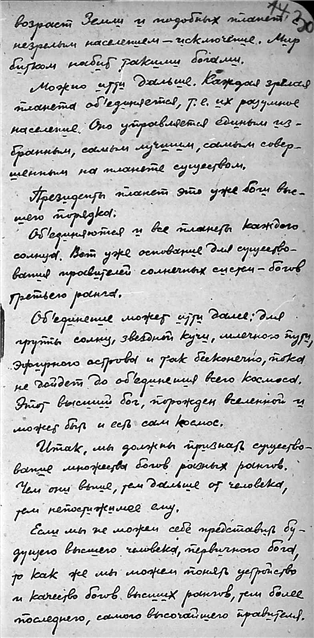 возраст Земли и подобных планет с
незрелым населением – исключение. Мир
битком набит такими богами.
Можно идти дальше. Каждая зрелая
планета объединяется, т.е. их разумное
население. Оно управляется единым из-
бранным, самым лучшим, самым совер-
шенным на планете существом.
Президенты планет это уже боги выс-
шего порядка.
Объединяются и все планеты каждого
солнца. Вот уже основание для существо-
вания правителей солнечных систем – богов
третьего ранга.
Объединение может идти далее: для
группы солнц, звездной кучи, млечного пути,
эфирного острова и так бесконечно, пока
не дойдет до объединения всего космоса.
Этот высший бог, порожден вселенной и
может быть и есть сам космос.
Итак, мы должны признать существо-
вание множества богов разных рангов.
Чем они выше, тем дальше от человека,
тем непостижимее ему.
Если мы не можем себе представить бу-
дущего высшего человека, первичного бога,
то как же мы можем понять устройство
и качество богов высших рангов, тем более
последнего, самого высочайшего правителя.